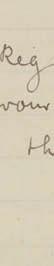 Reg
vour
th